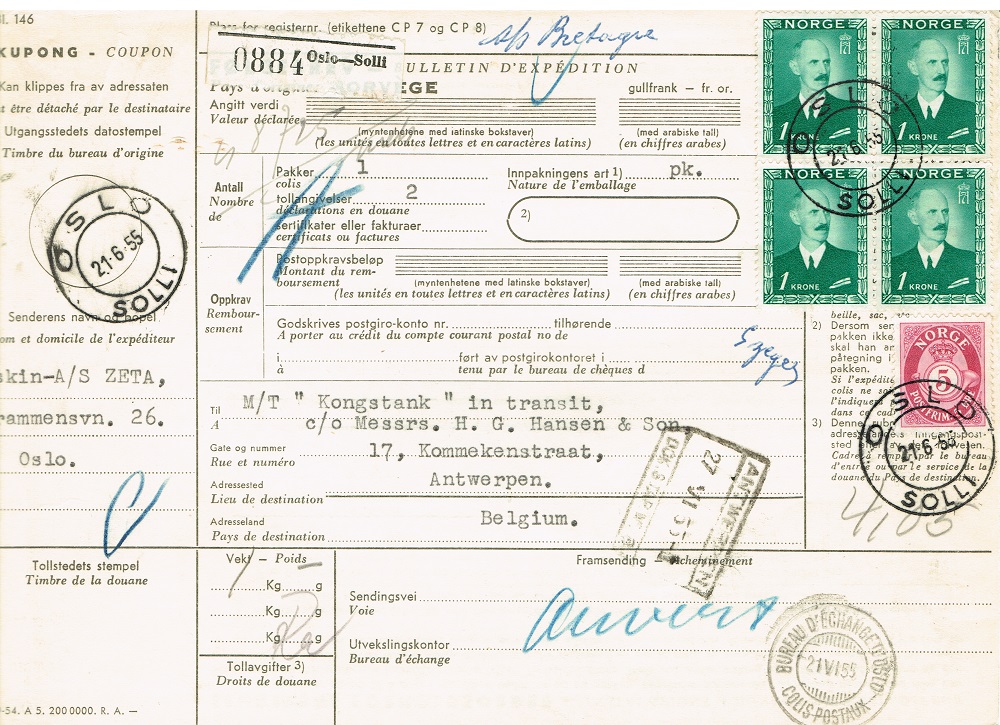 Bl. 146
KUPONG - COUPON
Kan klippes fra av adressaten
être détaché par le destinataire
Utgangsstedets datostempel
Timbre du bureau d'origine
OSLO
21·6·55
SOLLI
Senderens navn og bopel
om et domicile de l'expéditeur
skin-A/S ZETA,
rammensvn. 26.
Oslo.
Tollstedets stempel
Timbre de la douane
-54. A 5. 2000000. R. A. —
Plass for registernr. (etikettene CP 7 og CP 8)
0884 Oslo—Solli
M/S Bretagne
BULLETIN D'EXPÉDITION
Pays d'origine NORVÈGE
gullfrank – fr. or.
Angitt verdi
Valeur déclarée
(myntenhetene med latinske bokstaver)
(les unités en toutes lettres et en caractères latins)
(med arabiske tall)
(en chiffres arabes)
Antall
Nombre
de
Pakker 1
colis
tollangivelser 2
déclarations en douane
sertifikater eller fakturaer
certificats ou factures
Innpakningens art 1) pk.
Nature de l'emballage
2)
Oppkrav
Rembour-
sement
Postoppkravsbeløp
Montant du rem-
boursement
(myntenhetene med latinske bokstaver)
(les unités en toutes lettres et en caractères latins)
(med arabiske tall)
(en chiffres arabes)
Godskrives postgiro-konto nr. tilhørende
A porter au crédit du compte courant postal no de
i ført av postgirokontoret i
à tenu par le bureau de chèques d
Til
A
M/T " Kongstank " in transit,
c/o Messrs. H. G. Hansen & Son,
Gate og nummer
Rue et numéro
17, Kommekenstraat,
Adressested
Lieu de destination
Antwerpen.
Adresseland
Pays de destination
Belgium.
ANTWERPEN
27 VI 55
Vekt – Poids
Kg g
Kg g
Kg g
Tollavgifter 3)
Droits de douane
Framsending – Acheminement
Sendingsvei
Voie
Anvers
Utvekslingskontor
Bureau d'échange
BUREAU D'ÉCHANGE D'OSLO
21 VI 55
COLIS-POSTAUX
NORGE
1 KRONE
NORGE
1 KRONE
1 KRONE
1 KRONE
OSLO
21·6·55
SOLLI
NORGE
5
POSTFRIM
OSLO
21·6·55
SOLLI
beille, sac, etc
2) Dersom sen
pakken ikke
skal han an
påtegning i
pakken.
Si l'expédite
colis ne soi
l'indiquera
dans ce cad
3) Denne rubr
adresselandets inngangspost-
Cadre à remplir par le bureau
d'entrée ou par le service de la
douane du Pays de destination.